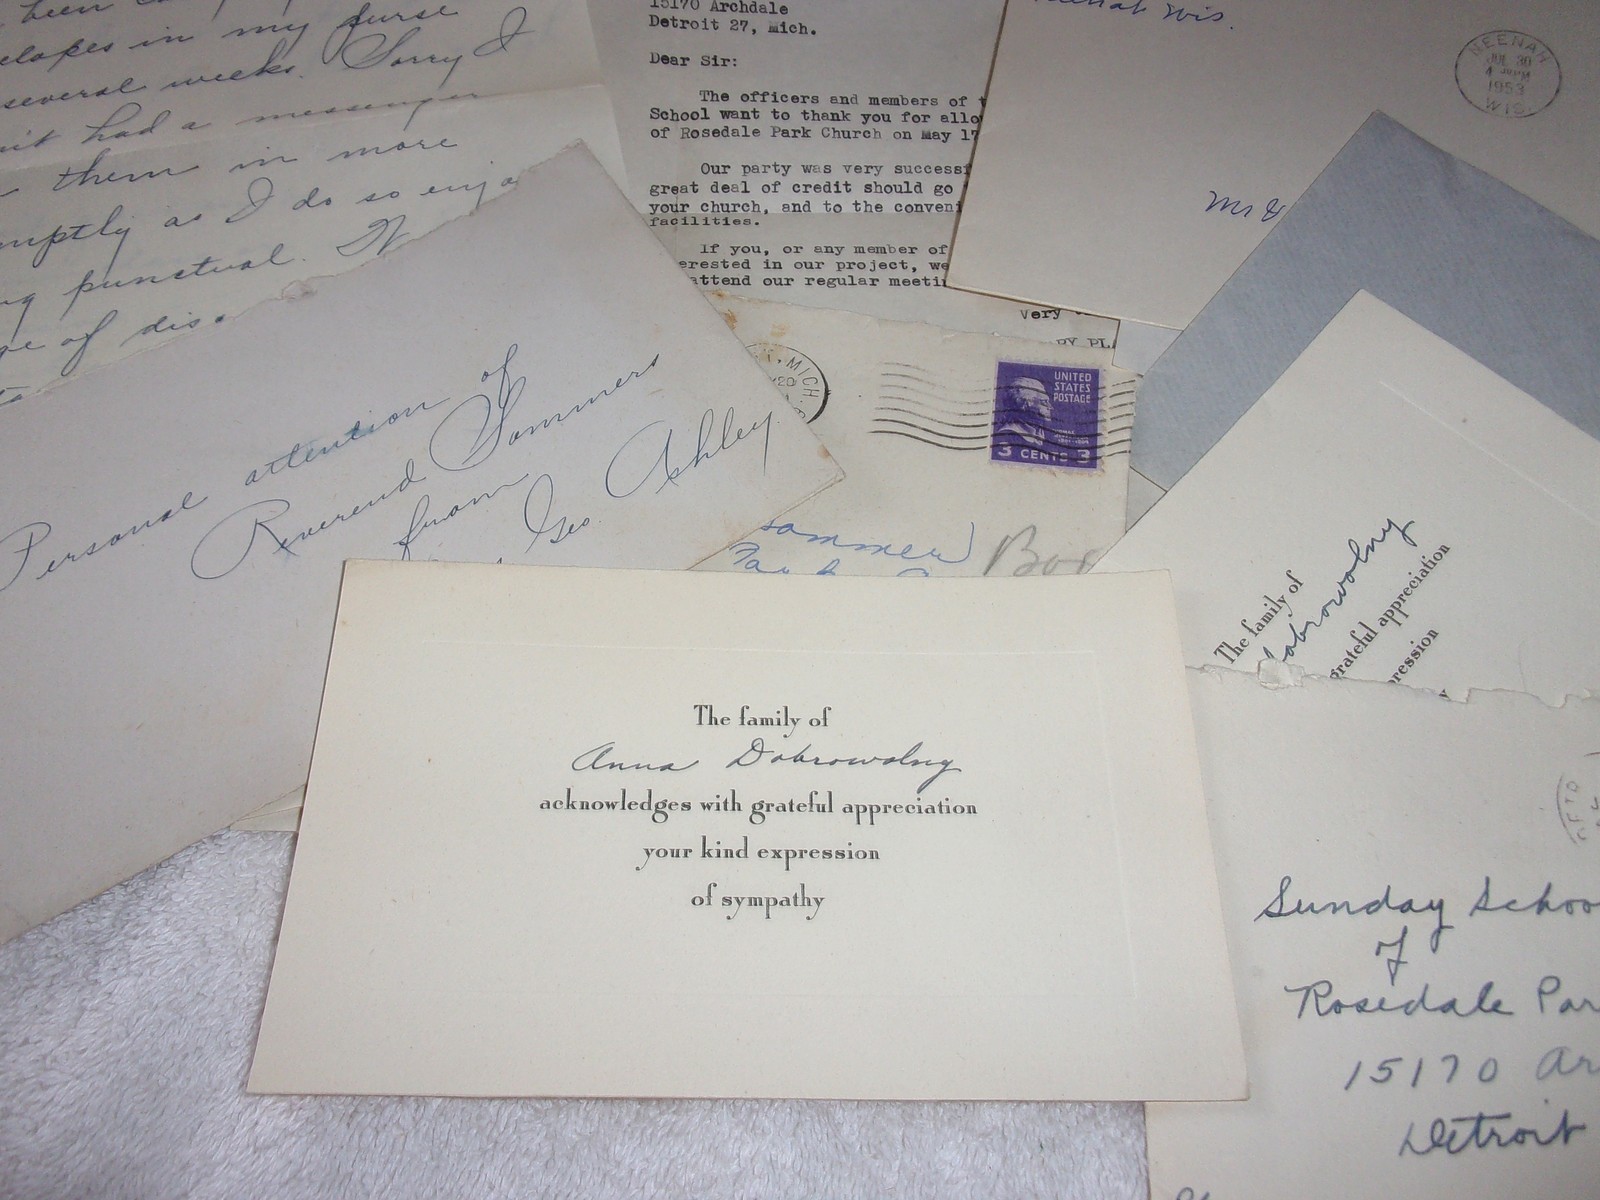 been
in my purse
several weeks. Sorry I
had a messenger
them in more
as I do so enjo
punctual.
of
15170 Archdale
Detroit 27, Mich.
Dear Sir:
The officers and members of
School want to thank you for allo
of Rosedale Park Church on May 17
Our party was very successf
great deal of credit should go
your church, and to the conveni
facilities.
If you, or any member of
erested in our project, we
attend our regular meetin
Very
Wis.
NEENAH
JUL 30
4 PM
1953
WIS.
Mr &
Personal attention of
Reverend Sommers
from
Geo Ashley
MICH.
UNITED
STATES
POSTAGE
3 CENTS 3
sommer
Bor
The family of
Dobrowolny
grateful appreciation
pression
The family of
Anna Dobrowolny
acknowledges with grateful appreciation
your kind expression
of sympathy
Sunday Schoo
of
Rosedale Par
15170 Ar
Detroit